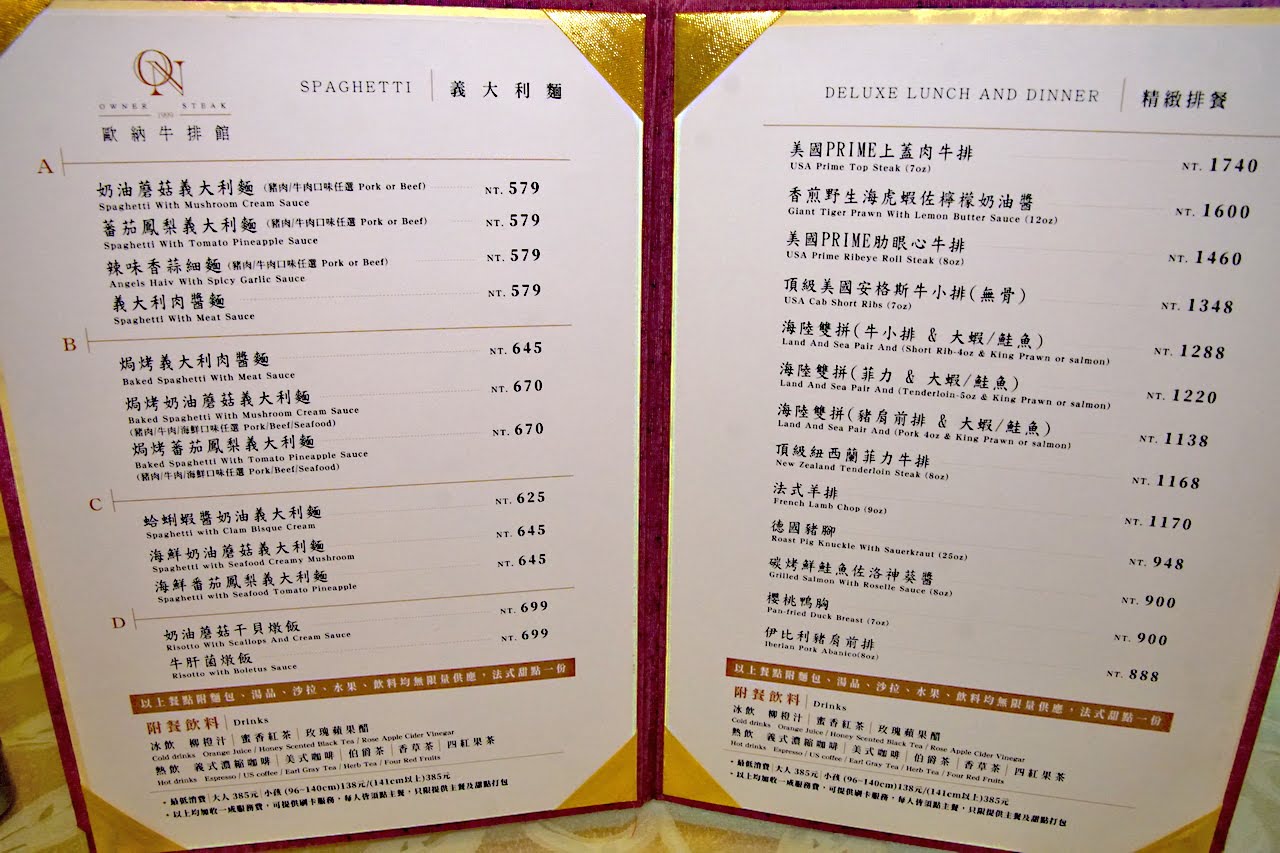 ON
OWNER STEAK
1999
歐納牛排館
SPAGHETTI | 義大利麵
A
奶油蘑菇義大利麵 (豬肉/牛肉口味任選 Pork or Beef) NT. 579
Spaghetti With Mushroom Cream Sauce
蕃茄鳳梨義大利麵 (豬肉/牛肉口味任選 Pork or Beef) NT. 579
Spaghetti With Tomato Pineapple Sauce
辣味香蒜細麵 (豬肉/牛肉口味任選 Pork or Beef) NT. 579
Angels Haiv With Spicy Garlic Sauce
義大利肉醬麵 NT. 579
Spaghetti With Meat Sauce
B
焗烤義大利肉醬麵 NT. 645
Baked Spaghetti With Meat Sauce
焗烤奶油蘑菇義大利麵 NT. 670
Baked Spaghetti With Mushroom Cream Sauce
(豬肉/牛肉/海鮮口味任選 Pork/Beef/Seafood)
焗烤蕃茄鳳梨義大利麵 NT. 670
Baked Spaghetti With Tomato Pineapple Sauce
(豬肉/牛肉/海鮮口味任選 Pork/Beef/Seafood)
C
蛤蜊蝦醬奶油義大利麵 NT. 625
Spaghetti with Clam Bisque Cream
海鮮奶油蘑菇義大利麵 NT. 645
Spaghetti with Seafood Creamy Mushroom
海鮮番茄鳳梨義大利麵 NT. 645
Spaghetti with Seafood Tomato Pineapple
D
奶油蘑菇干貝燉飯 NT. 699
Risotto with Scallops And Cream Sauce
牛肝菌燉飯 NT. 699
Risotto with Boletus Sauce
以上餐點附麵包、湯品、沙拉、水果、飲料均無限量供應，法式甜點一份
附餐飲料 | Drinks
冰飲 柳橙汁 | 蜜香紅茶 | 玫瑰蘋果醋
Cold drinks Orange Juice / Honey Scented Black Tea / Rose Apple Cider Vinegar
熱飲 義式濃縮咖啡 | 美式咖啡 | 伯爵茶 | 香草茶 | 四紅果茶
Hot drinks Espresso / US coffee / Earl Gray Tea / Herb Tea / Four Red Fruits
• 最低消費 | 大人 385元 | 小孩 (96~140cm)138元/(141cm以上)385元
• 以上均加收一成服務費，可提供刷卡服務，每人皆須點主餐，只限提供主餐及甜點打包
DELUXE LUNCH AND DINNER | 精緻排餐
美國PRIME上蓋肉牛排 NT. 1740
USA Prime Top Steak (7oz)
香煎野生海虎蝦佐檸檬奶油醬 NT. 1600
Giant Tiger Prawn With Lemon Butter Sauce (12oz)
美國PRIME肋眼心牛排 NT. 1460
USA Prime Ribeye Roll Steak (8oz)
頂級美國安格斯牛小排(無骨) NT. 1348
USA Cab Short Ribs (7oz)
海陸雙拼(牛小排 & 大蝦/鮭魚) NT. 1288
Land And Sea Pair And (Short Rib-4oz & King Prawn or salmon)
海陸雙拼(菲力 & 大蝦/鮭魚) NT. 1220
Land And Sea Pair And (Tenderloin-5oz & King Prawn or salmon)
海陸雙拼(豬肩前排 & 大蝦/鮭魚) NT. 1138
Land And Sea Pair And (Pork 4oz & King Prawn or salmon)
頂級紐西蘭菲力牛排 NT. 1168
New Zealand Tenderloin Steak (8oz)
法式羊排 NT. 1170
French Lamb Chop (9oz)
德國豬腳 NT. 948
Roast Pig Knuckle With Sauerkraut (25oz)
碳烤鮮鮭魚佐洛神葵醬 NT. 900
Grilled Salmon With Roselle Sauce (8oz)
櫻桃鴨胸 NT. 900
Pan-fried Duck Breast (7oz)
伊比利豬肩前排 NT. 888
Iberian Pork Abanico(8oz)
以上餐點附麵包、湯品、沙拉、水果、飲料均無限量供應，法式甜點一份
附餐飲料 | Drinks
冰飲 柳橙汁 | 蜜香紅茶 | 玫瑰蘋果醋
Cold drinks Orange Juice / Honey Scented Black Tea / Rose Apple Cider Vinegar
熱飲 義式濃縮咖啡 | 美式咖啡 | 伯爵茶 | 香草茶 | 四紅果茶
Hot drinks Espresso / US coffee / Earl Gray Tea / Herb Tea / Four Red Fruits
• 最低消費 | 大人 385元 | 小孩 (96~140cm)138元/(141cm以上)385元
• 以上均加收一成服務費，可提供刷卡服務，每人皆須點主餐，只限提供主餐及甜點打包